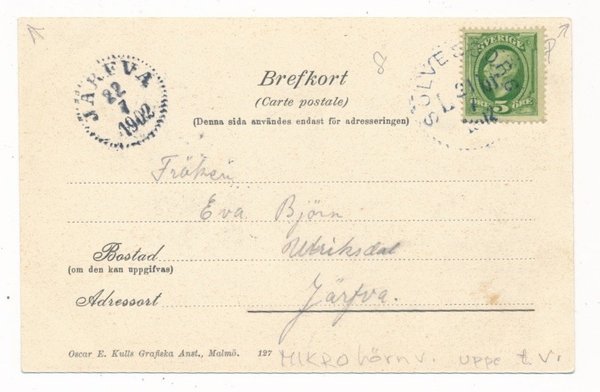 JÄRFVA
22
7
1902
SÖLVESBORG
L
SVERIGE
5 ÖRE
Brefkort
(Carte postale)
(Denna sida användes endast för adresseringen)
Fröken
Eva Björn
Bostad Ulriksdal
(om den kan uppgifvas)
Adressort Järfva.
Oscar E. Kulls Grafiska Anst., Malmö. 127
MIKROhörnv. uppe t.v.